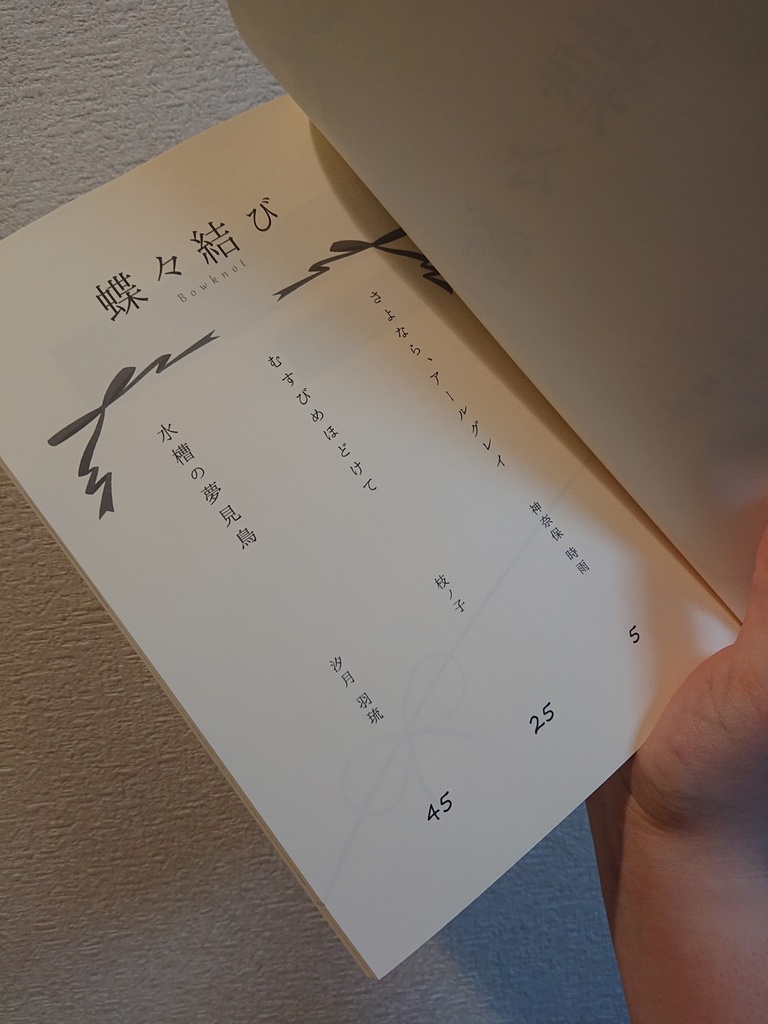 蝶々結び
Bowknot
さよなら、アールグレイ 神奈保 時雨 5
むすびめほどけて 枝ノ子 25
水槽の夢見鳥 汐月 羽琉 45